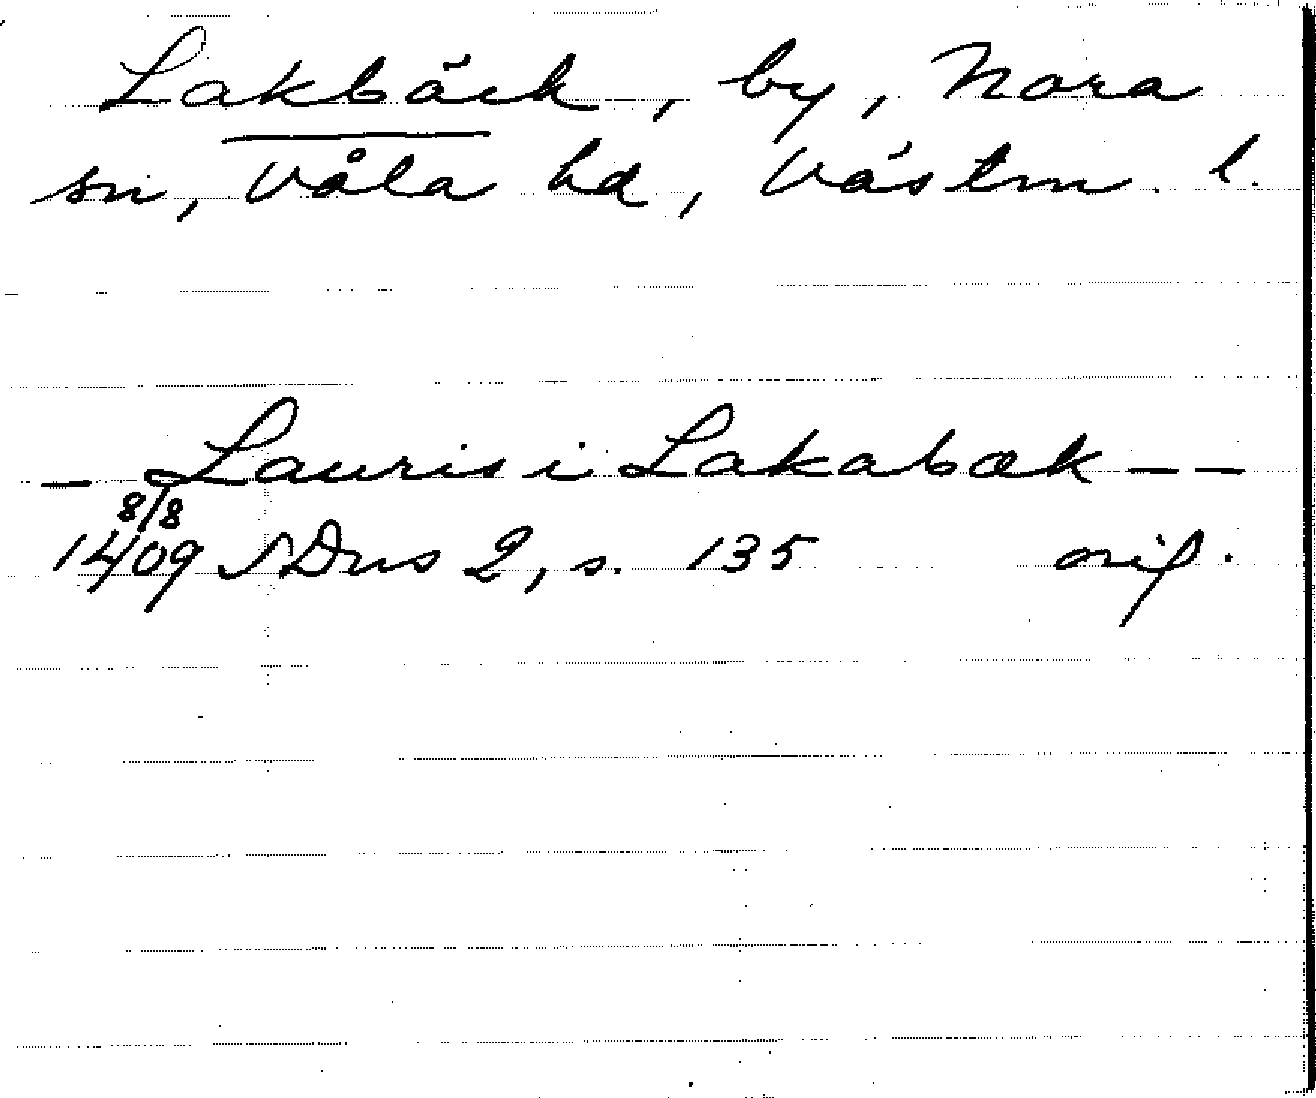 Lakbäck, by, Nora
sn, Våla hd, Västm. l.
– Lauris i Lakabæk – –
8/8
1409 SDns 2, s. 135 orig.